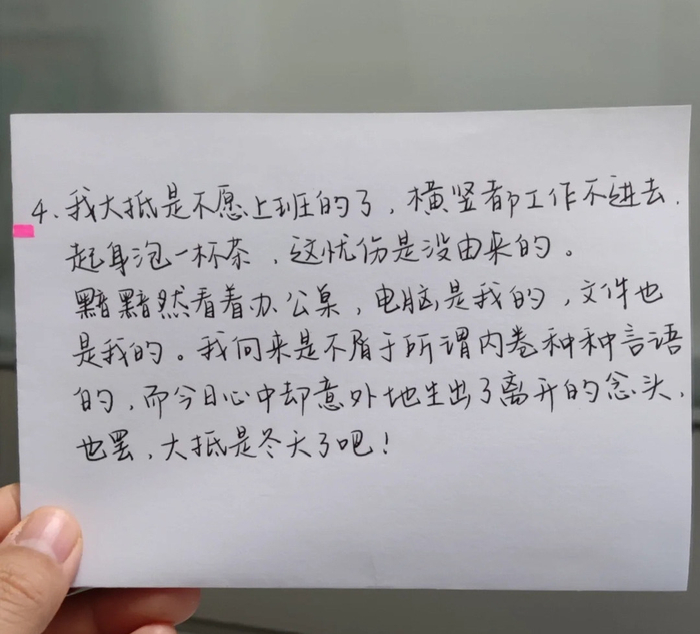 4、我大抵是不愿上班的了，横竖都工作不进去，
起身泡一杯茶，这忧伤是没由来的。
黯黯然看着办公桌，电脑是我的，文件也
是我的。我向来是不屑于所谓内卷种种言语
的，而今日心中却意外地生出了离开的念头，
也罢，大抵是冬天了吧！